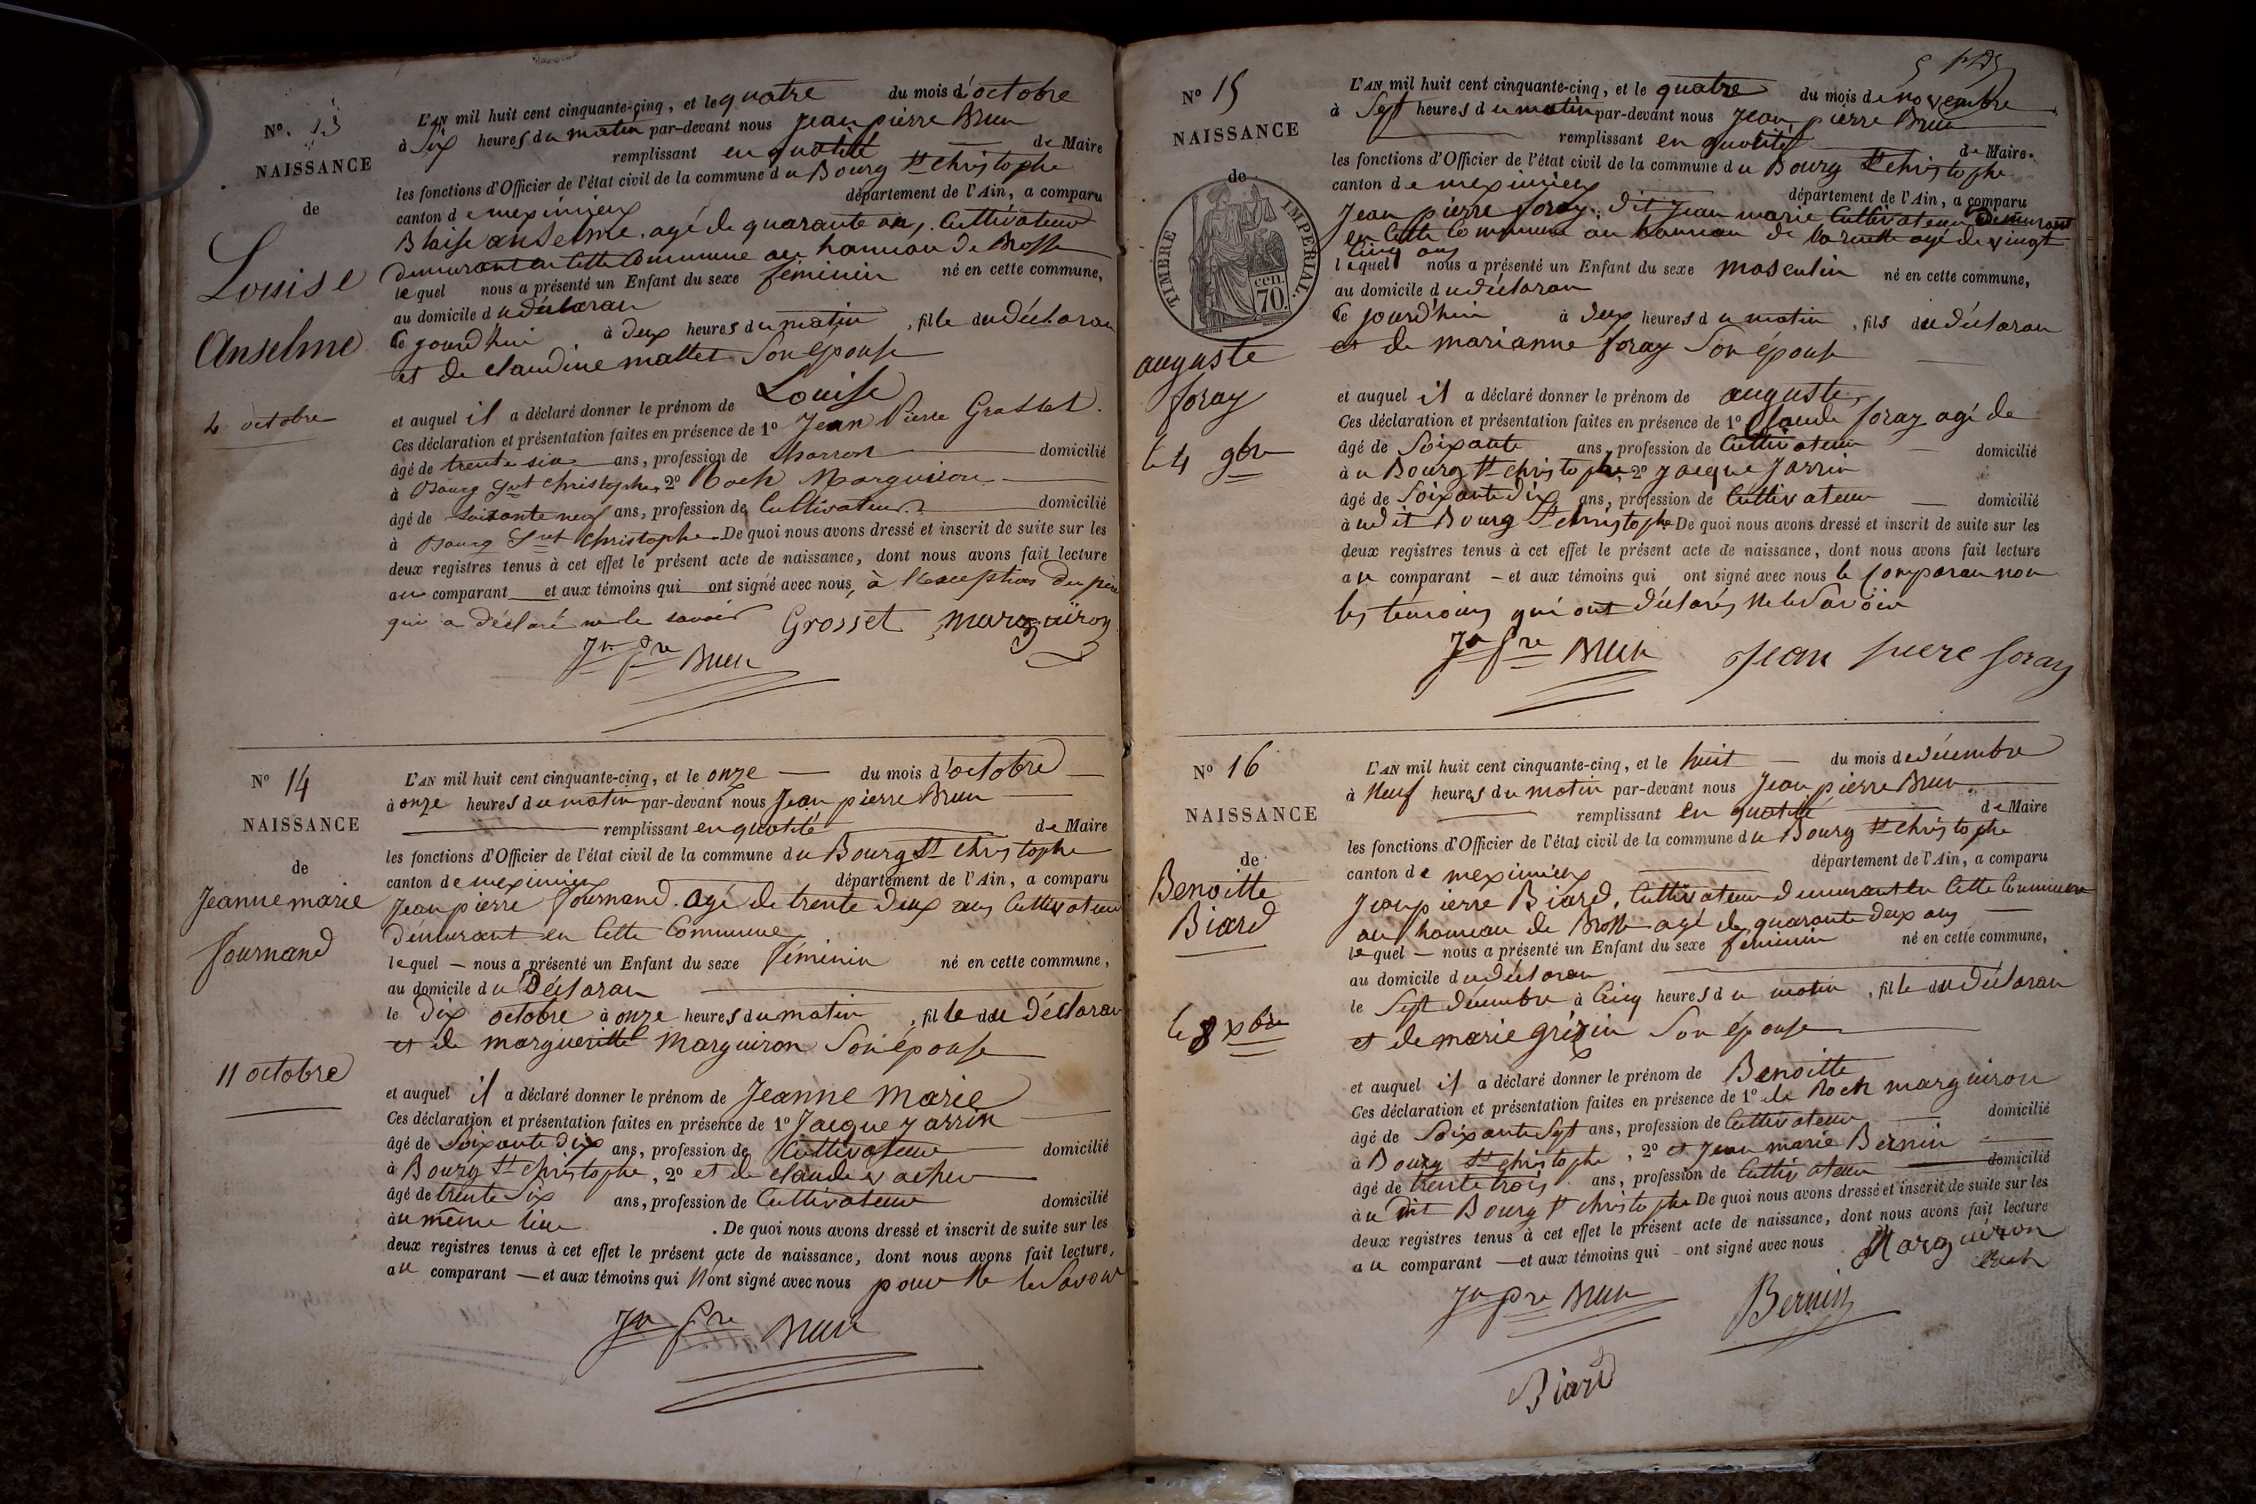 N° 13
NAISSANCE
de
Louise
Anselme
4 octobre
L'AN mil huit cent cinquante-cinq, et le quatre du mois d'octobre
à Six heures du matin par-devant nous Jean pierre Brun
remplissant en qualité de Maire
les fonctions d'Officier de l'état civil de la commune du Bourg St christophe
canton de meximieux département de l'Ain, a comparu
Blaise anselme, agé de quarante ans, Cultivateur
demurant en Cette Commune au hamau de Brosse
lequel nous a présenté un Enfant du sexe féminin né en cette commune,
au domicile du déclaran
Ce jourd'hui à deux heures du matin, fille du déclaran
et de claudine mallet Son épouse
et auquel il a déclaré donner le prénom de Louise
Ces déclaration et présentation faites en présence de 1° Jean Pierre Grosset
âgé de trente six ans, profession de charron domicilié
à Bourg Snt Christophe, 2° Roch Marguiron
âgé de soixante neuf ans, profession de Cultivateur domicilié
à Bourg Snt Christophe. De quoi nous avons dressé et inscrit de suite sur les
deux registres tenus à cet effet le présent acte de naissance, dont nous avons fait lecture
au comparant et aux témoins qui ont signé avec nous, à l'exception du père
qui a déclaré ne le savoir Grosset marguiron
Jn Pre Brun
N° 14
NAISSANCE
de
Jeanne marie
Journand
11 octobre
L'AN mil huit cent cinquante-cinq, et le onze du mois d'octobre
à onze heures du matin par-devant nous Jean pierre Brun
remplissant en qualité de Maire
les fonctions d'Officier de l'état civil de la commune du Bourg St christophe
canton de meximieux département de l'Ain, a comparu
Jean pierre Journand. agé de trente deux ans Cultivateur
demurant en Cette Commune
lequel nous a présenté un Enfant du sexe féminin né en cette commune,
au domicile du Déclaran
le Dix octobre à onze heures du matin, fille du déclaran
et de margueritte Marguiron Son épouse
et auquel il a déclaré donner le prénom de Jeanne Marie
Ces déclaration et présentation faites en présence de 1° Jacque Jarrin
âgé de Soixante dix ans, profession de Cultivateur domicilié
à Bourg St christophe, 2° et de claude
âgé de trente Six ans, profession de Cultivateur domicilié
au même lieu. De quoi nous avons dressé et inscrit de suite sur les
deux registres tenus à cet effet le présent acte de naissance, dont nous avons fait lecture,
au comparant et aux témoins qui n'ont signé avec nous pour ne le Savoir
Jn Pre Brun
N° 15
NAISSANCE
de
TIMBRE IMPERIAL.
cen. 70.
auguste
foray
le 4 9bre
L'AN mil huit cent cinquante-cinq, et le quatre du mois de novembre
à Sept heures du matin par-devant nous Jean pierre Brun
remplissant en qualité de Maire.
les fonctions d'Officier de l'état civil de la commune du Bourg St christophe
canton de meximieux département de l'Ain, a comparu
Jean pierre foray, dit Jean marie Cultivateur demurant
en Cette Commune au hamau de la ruelle agé de vingt
Cinq ans
lequel nous a présenté un Enfant du sexe masculin né en cette commune,
au domicile du déclaran
Ce jourd'hui à deux heures du matin, fils du déclaran
et de marianne foray Son épouse
et auquel il a déclaré donner le prénom de auguste
Ces déclaration et présentation faites en présence de 1° Claude foray agé de
âgé de Soixante ans, profession de Cultivateur domicilié
à u Bourg St christophe, 2° Jacque Jarrin
âgé de Soixante dix ans, profession de Cultivateur domicilié
à udit Bourg St christophe De quoi nous avons dressé et inscrit de suite sur les
deux registres tenus à cet effet le présent acte de naissance, dont nous avons fait lecture
au comparant et aux témoins qui ont signé avec nous le Comparan non
les temoins qui ont déclarés ne le Savoir
Jn Pre Brun Jean piere foray
N° 16
NAISSANCE
de
Benoitte
Biard
le 8 xbre
L'AN mil huit cent cinquante-cinq, et le huit du mois de décembre
à Neuf heures du matin par-devant nous Jean pierre Brun
remplissant en qualité de Maire
les fonctions d'Officier de l'état civil de la commune du Bourg St christophe
canton de meximieux département de l'Ain, a comparu
Jean pierre Biard, Cultivateur demurant en Cette Commune
au hamau de Brosse agé de quarante deux ans
lequel nous a présenté un Enfant du sexe féminin né en cette commune,
au domicile du déclaran
le Sept décembre à Cinq heures du matin, fille du déclaran
et de marie grizin Son épouse
et auquel il a déclaré donner le prénom de Benoitte
Ces déclaration et présentation faites en présence de 1° de Roch marguiron
âgé de Soixante Sept ans, profession de Cultivateur domicilié
à Bourg St christophe, 2° et Jean marie Bernin
âgé de trente trois ans, profession de Cultivateur domicilié
à u dit Bourg St christophe De quoi nous avons dressé et inscrit de suite sur les
deux registres tenus à cet effet le présent acte de naissance, dont nous avons fait lecture
au comparant et aux témoins qui ont signé avec nous Marguiron
Jn Pre Brun Bernin
Biard